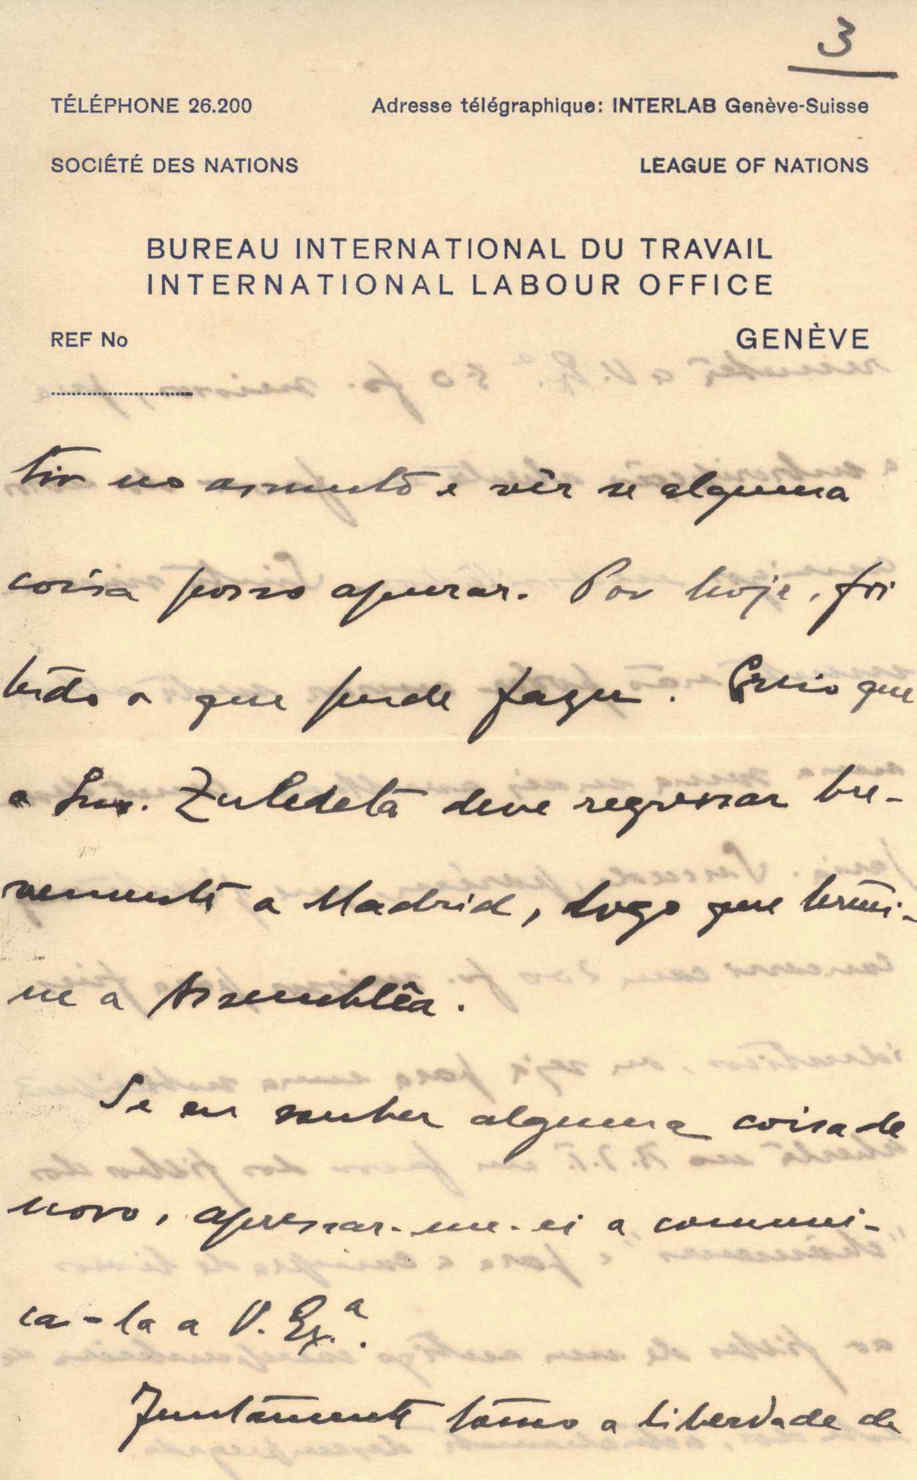 3
TÉLÉPHONE 26.200 Adresse télégraphique: INTERLAB Genève-Suisse
SOCIÉTÉ DES NATIONS LEAGUE OF NATIONS
BUREAU INTERNATIONAL DU TRAVAIL
INTERNATIONAL LABOUR OFFICE
REF No GENÈVE
tir no assunto e vêr se alguma
coisa posso apurar. Por hoje, foi
tudo o que pude fazer. Creio que
a Snra. Zulueta deve regressar bre-
vemente a Madrid, logo que termi-
ne a Assemblêa.
Se eu souber alguma coisa de
novo, apressar-me-ei a comuni-
ca-la a V. Ex.ª.
Juntamente tômo a liberdade de